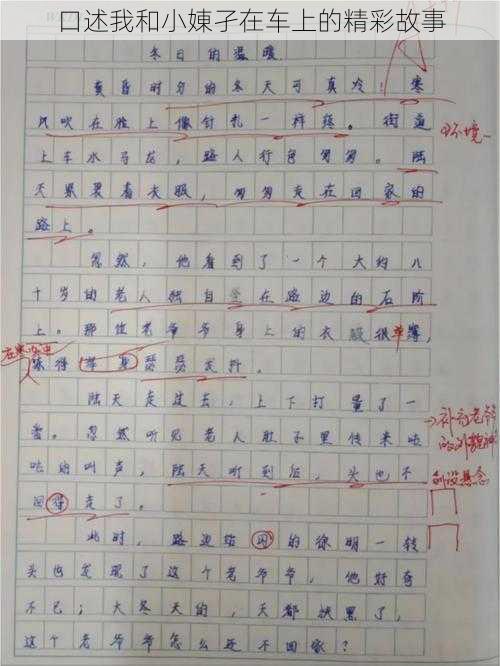 口述我和小婡孑在车上的精彩故事
冬日的温暖
黄昏时分的冬天可真冷！寒
风吹在脸上像针扎一样疼。街道
上车水马龙，路人行色匆匆。陆
天裹裹着衣服，匆匆走在回家的
路上。
忽然，他看到了一个大约八
十岁的老人独自坐在路边的石阶
上。那位老爷爷身上的衣服很单薄，
冻得浑身瑟瑟发抖。
陆天走过去，上下打量了一
番。忽然听见老人肚子里传来咕
咕的叫声，陆天听到后，头也不
回得走了。
此时，路边的徐明一转
头也发现了这个老爷爷，他好奇
不已；大冬天的，天都快黑了，
这个老爷爷怎么还不回家？
环境
补充老爷爷
的外貌神